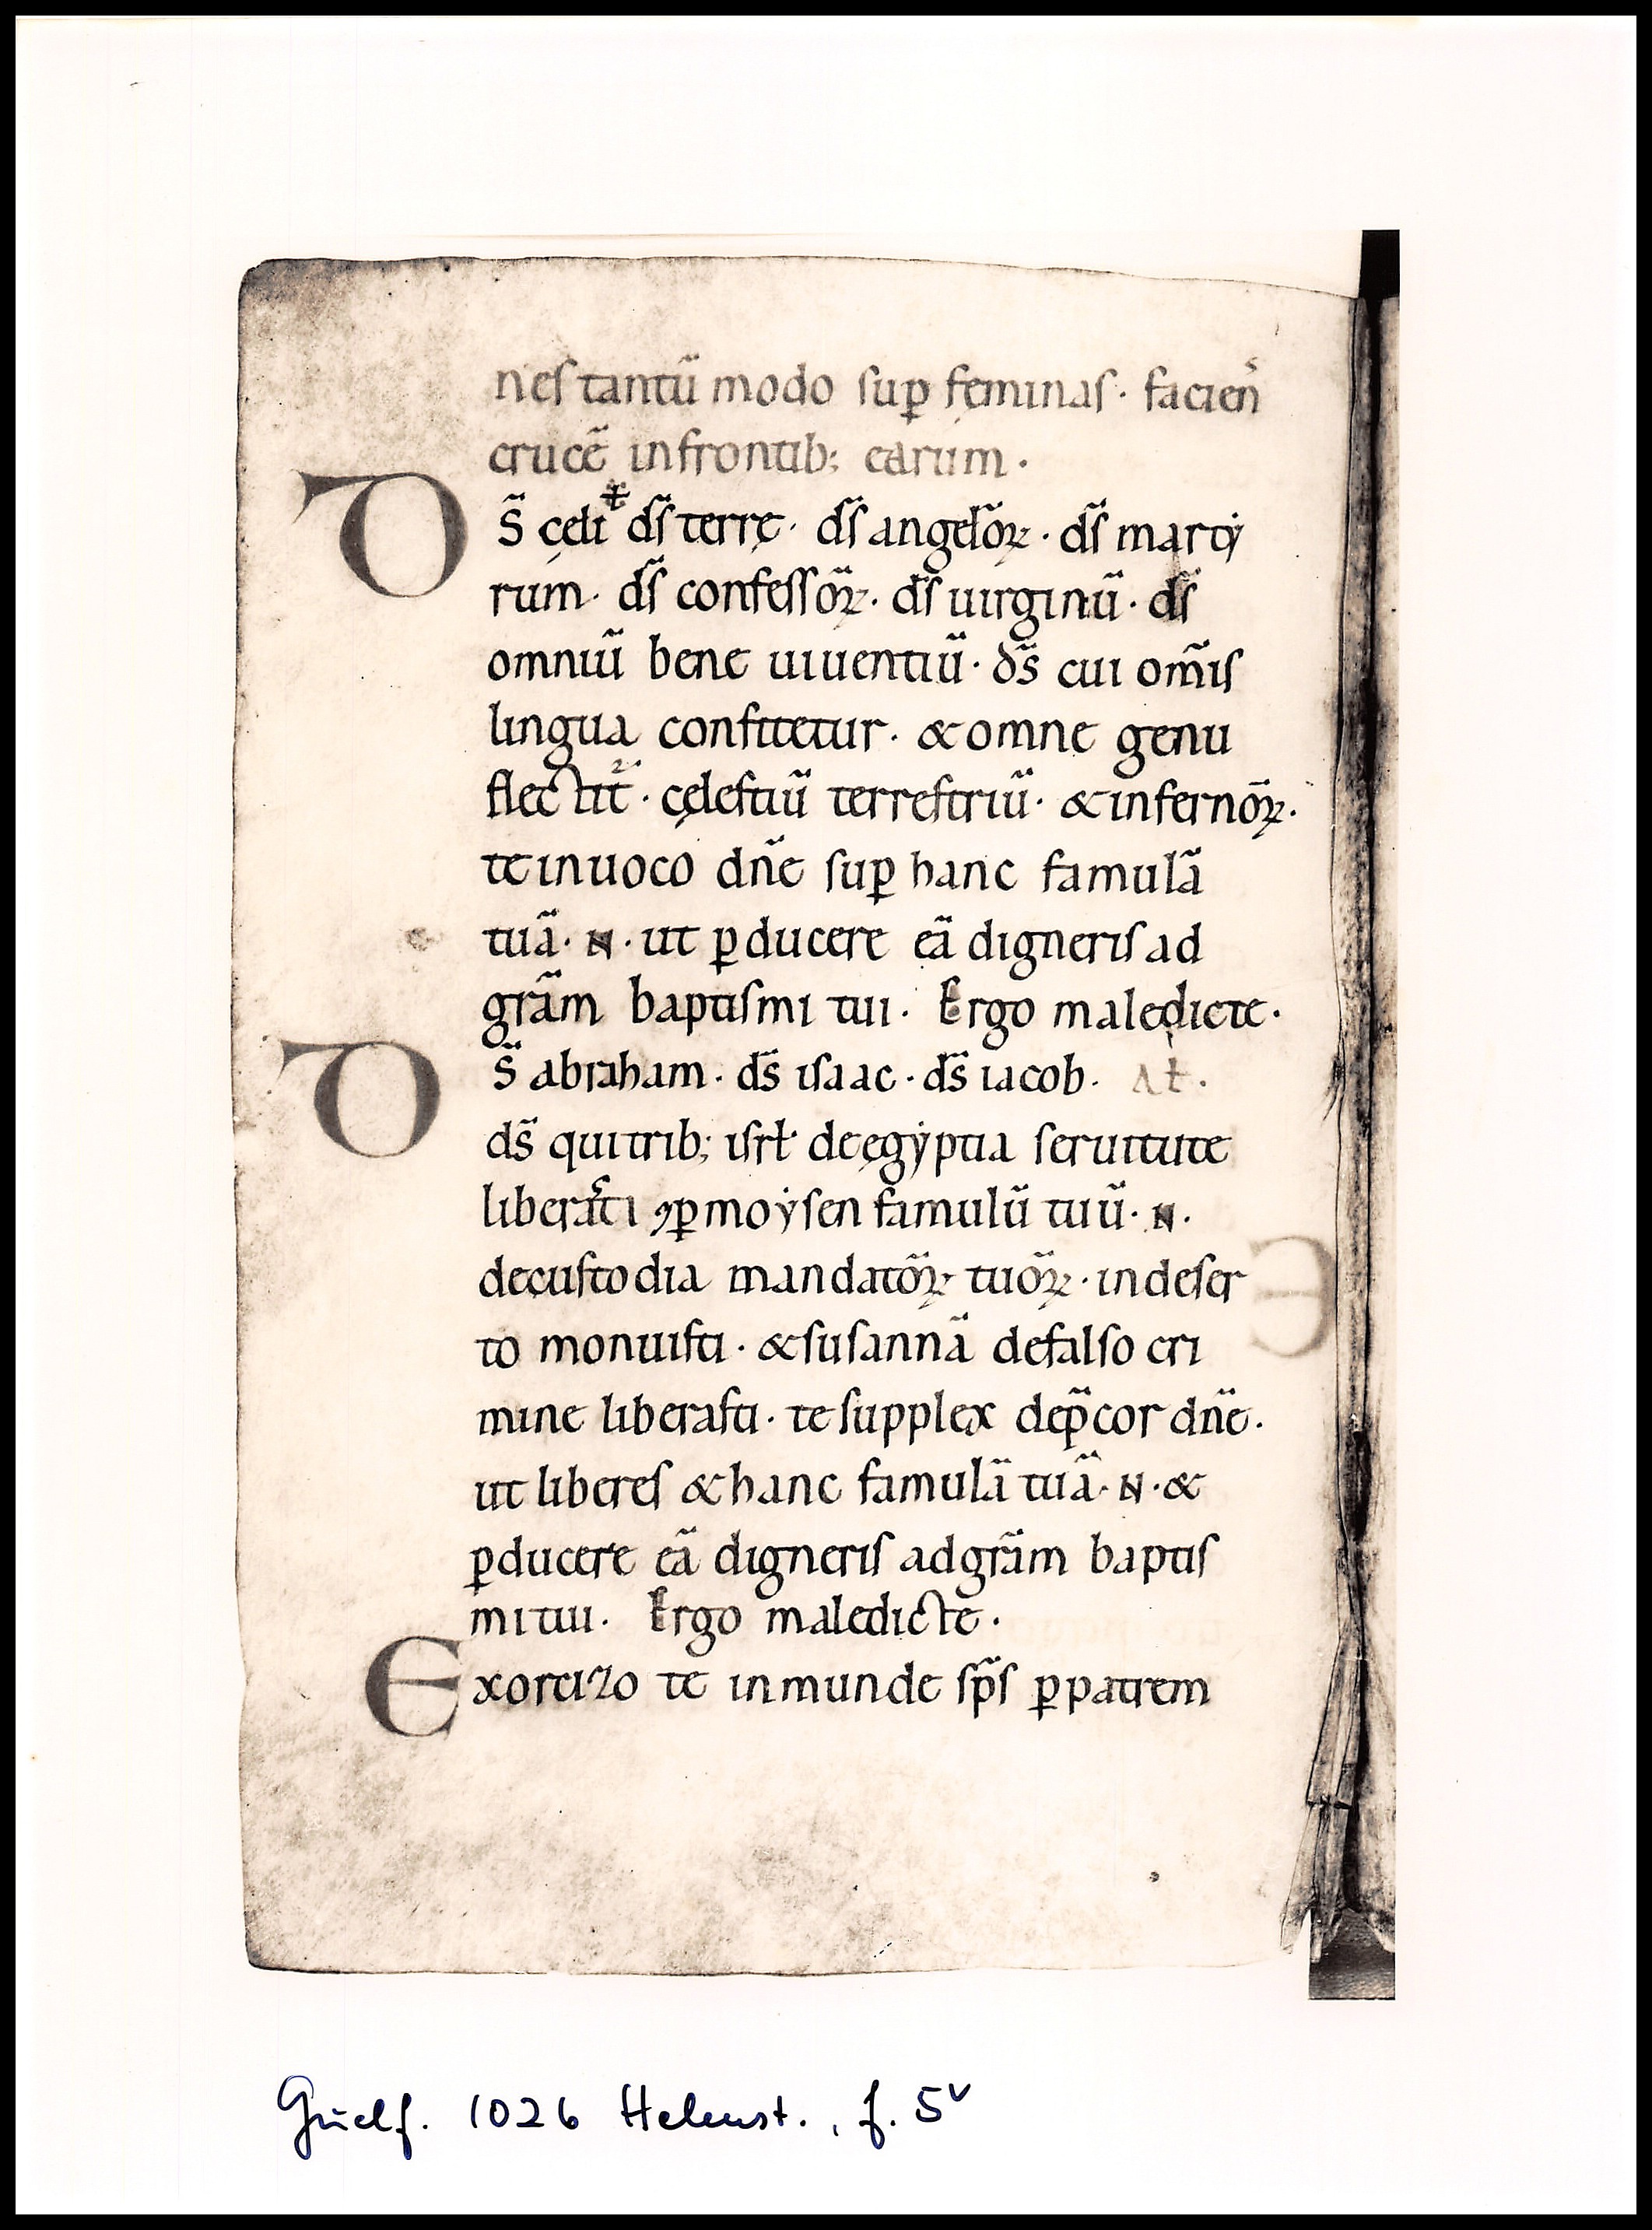 neſ tantū modo ſuꝑ feminaſ · facien̄ s
crucē infrontib; earum ·
D S̄ cęli ✝ dſ̄ terrę · dſ̄ angelōꝝ · dſ̄ marty
rum · dſ̄ confeſſōꝝ · dſ̄ uirginū · dſ̄
omniū bene uiuentiū · ds̄ cui om̄iſ
lingua confitetur · & omne genu
flectit̄ · cęleſtiū terreſtriū · & infernōꝝ ·
te inuoco dn̄e ſuꝑ hanc famulā
tuā · N · ut ꝑducere eā digneriſ ad
grām baptiſmi tui · Ergo maledicte ·
D S̄ abraham · ds̄ iſaac · ds̄ iacob · Aƚ ·
ds̄ qui trib; iſrƚ de ęgẏptia ſeruitute
liberaſti ꝯꝑ moẏſen famulū tuū · N ·
de cuſtodia mandatōꝝ tuōꝝ · in deſer
to monuiſti · & ſuſannā de falſo cri
mine liberaſti · te ſupplex dep̄cor dn̄e ·
ut libereſ & hanc famulā tuā · N · &
ꝑducere eā digneriſ ad grām baptiſ
mi tui · Ergo maledicte ·
Exorcizo te inmunde ſp̄ſ ꝑ patrem
Guelf. 1026 Helmst., f. 5v